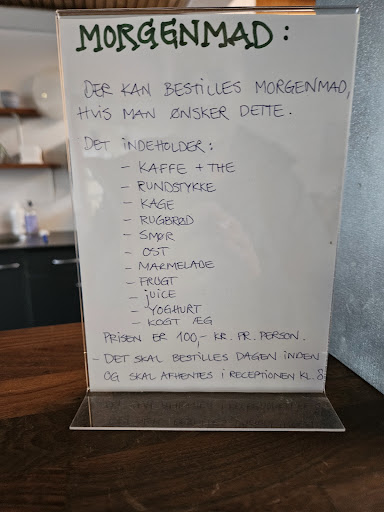 MORGENMAD :
DER KAN BESTILLES MORGENMAD,
HVIS MAN ØNSKER DETTE.
DET INDEHOLDER :
- KAFFE + THE
- RUNDSTYKKE
- KAGE
- RUGBRØD
- SMØR
- OST
- MARMELADE
- FRUGT
- JUICE
- YOGHURT
- KOGT ÆG
PRISEN ER 100,- KR. PR. PERSON.
- DET SKAL BESTILLES DAGEN INDEN
OG SKAL AFHENTES I RECEPTIONEN KL. 8